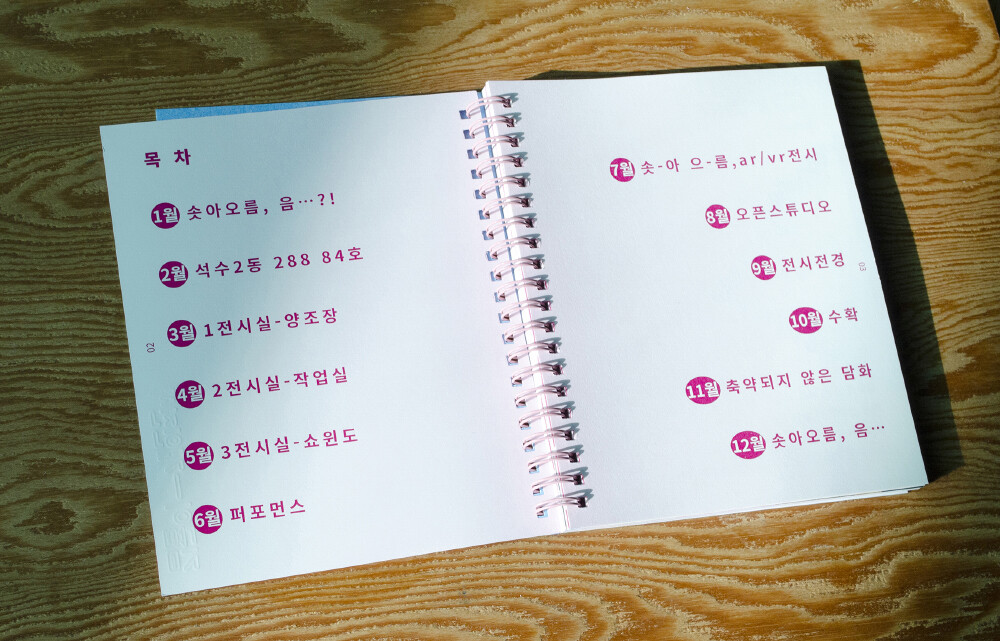 목 차
1월 솟아오름, 음…?!
2월 석수2동 288 84호
3월 1전시실-양조장
4월 2전시실-작업실
5월 3전시실-쇼윈도
6월 퍼포먼스
02
7월 솟-아 으-름,ar/vr전시
8월 오픈스튜디오
9월 전시전경
10월 수확
11월 축약되지 않은 담화
12월 솟아오름, 음…
03